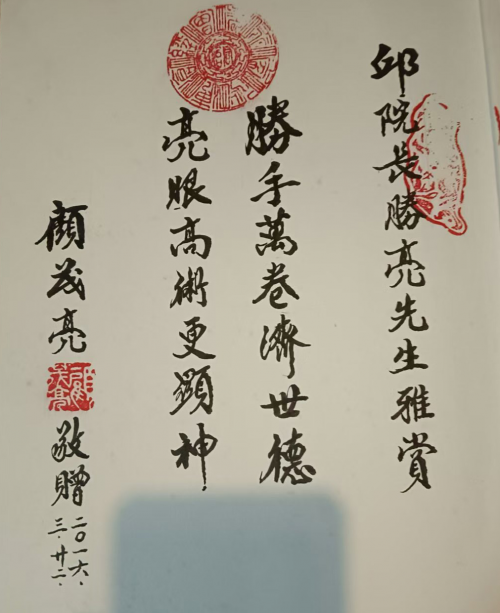 邱院長勝亮先生雅賞
勝手萬卷濟世德
亮眼高術更顯神
顧茂亮
敬贈
二〇一六.
三.廿二.